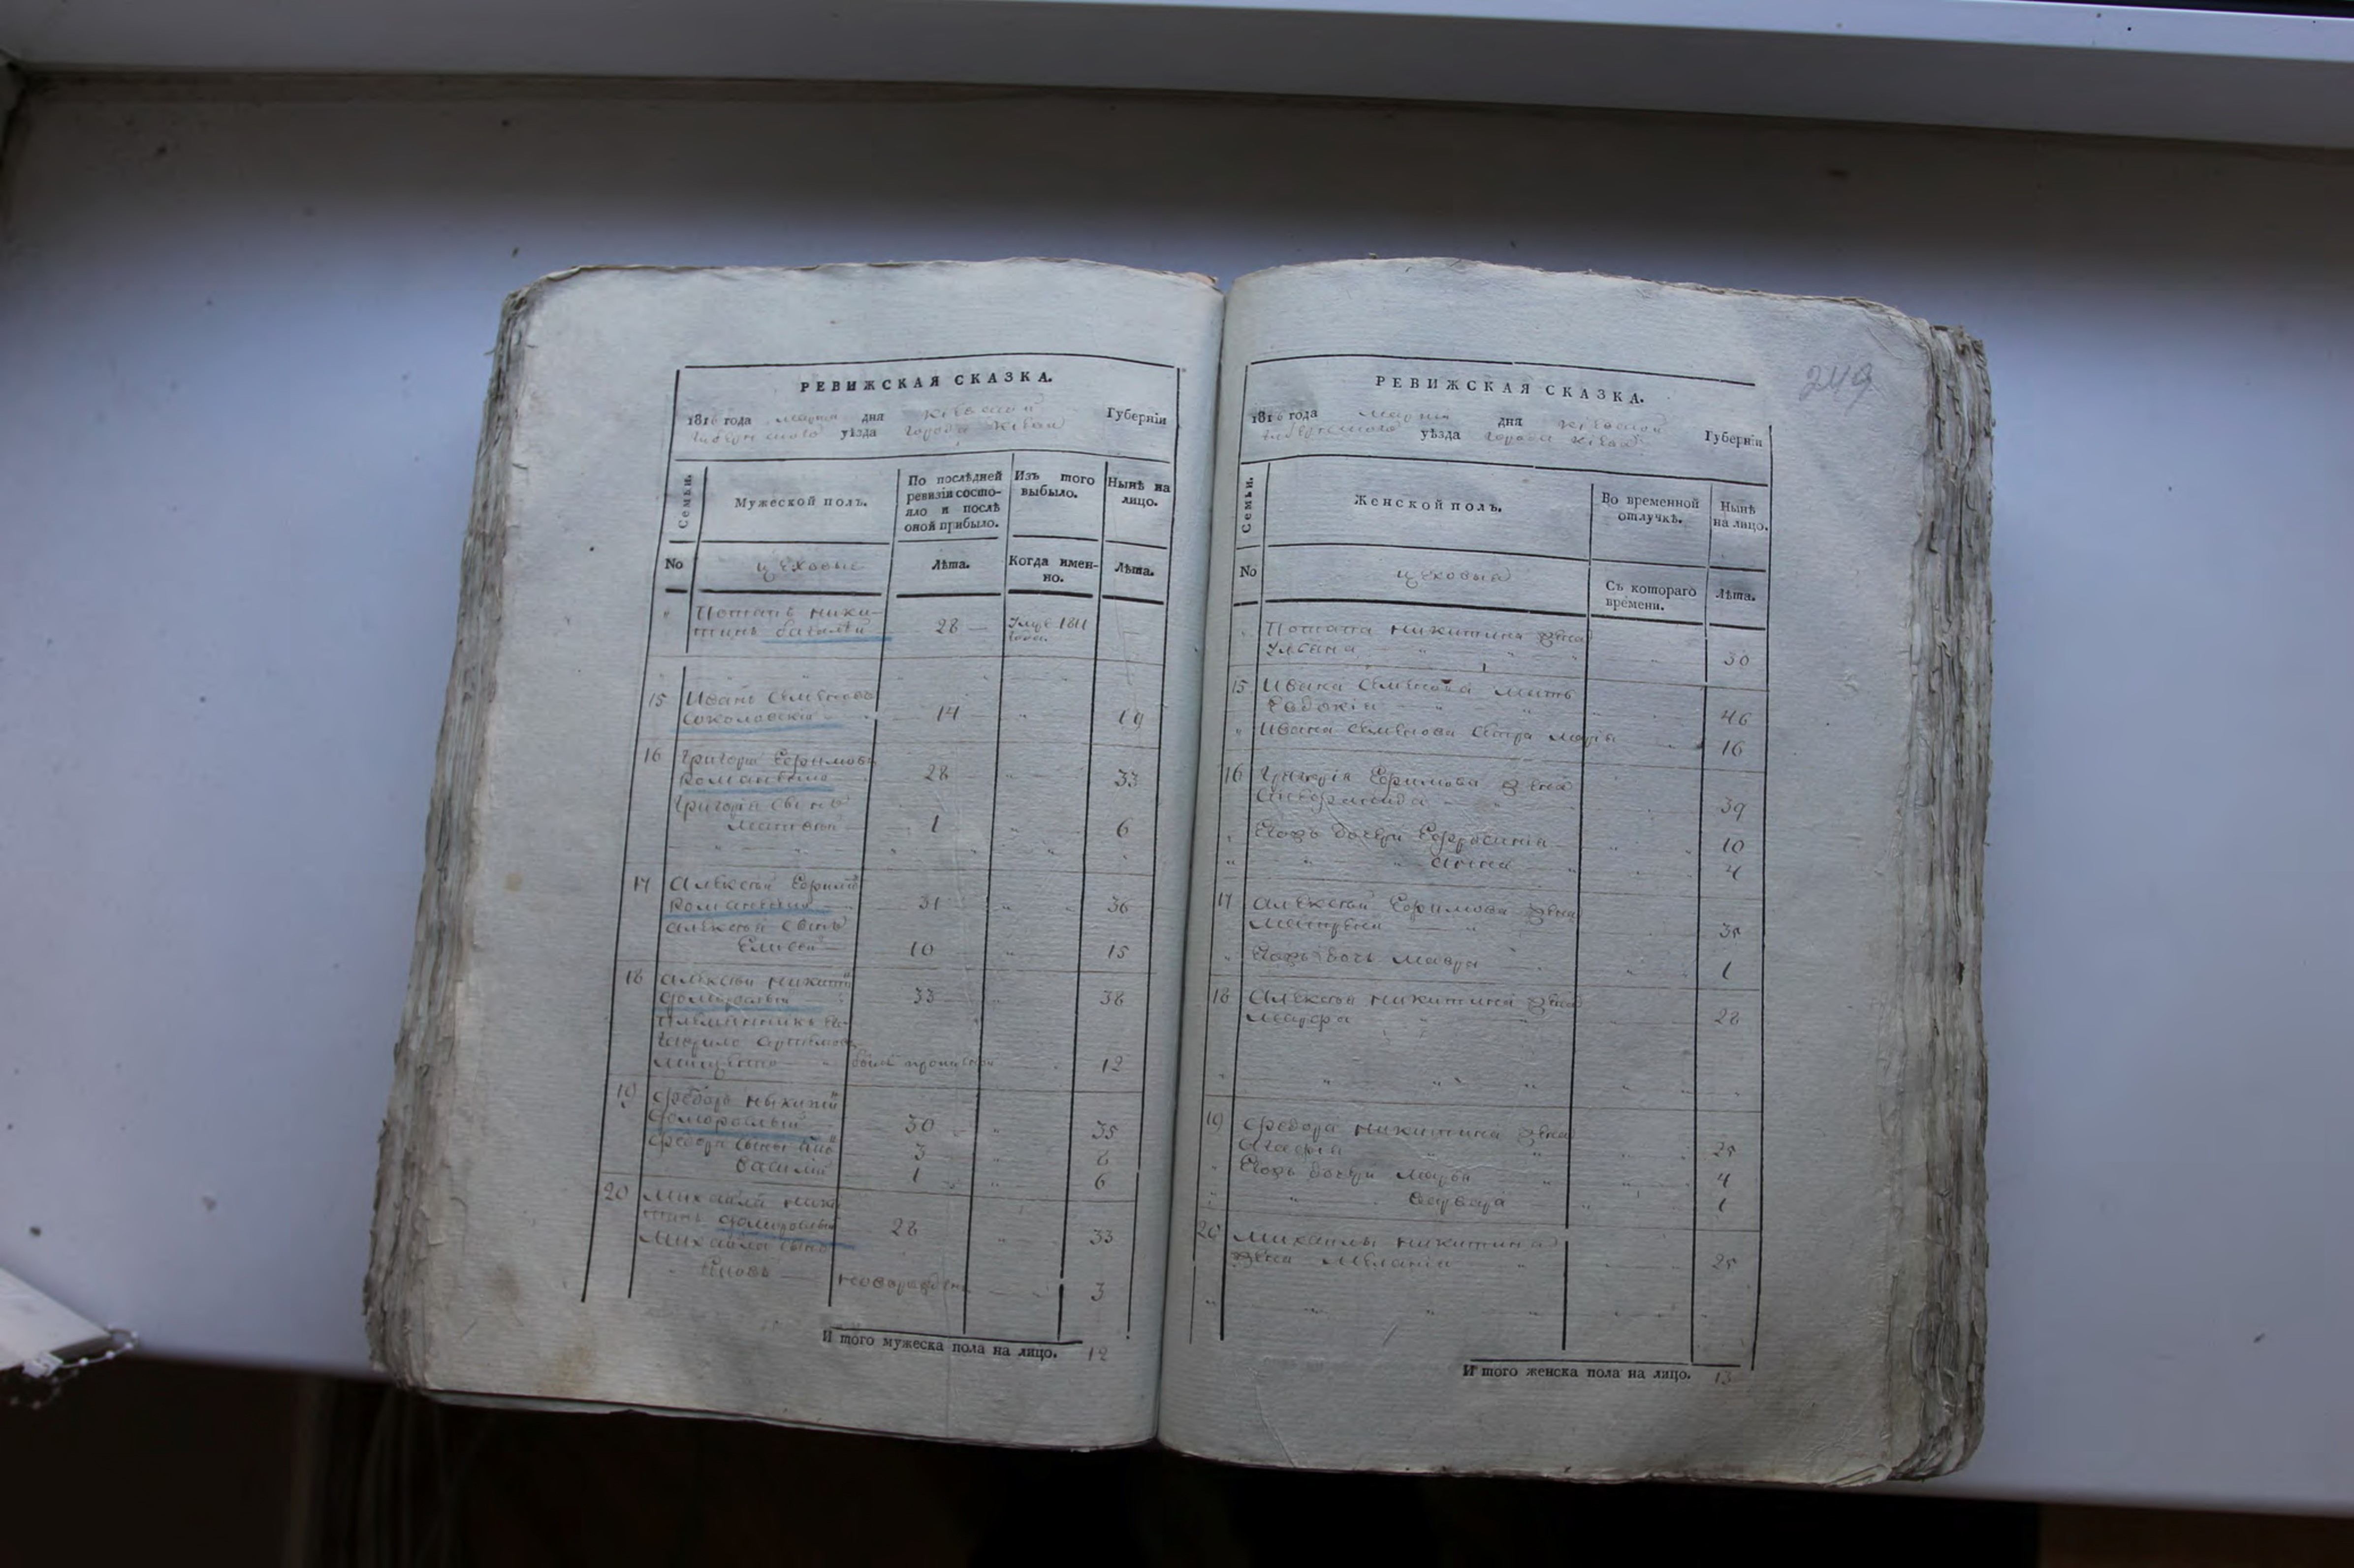 РЕВИЖСКАЯ СКАЗКА.
1816 года марта дня Кіевской Губерніи
уѣзда города Кіева
Семьи.
Мужеской полъ.
По послѣдней ревизіи состояло и послѣ оной прибыло.
Изъ того выбыло.
Нынѣ на лицо.
No
цеховые
Лѣта.
Когда именно.
Лѣта.
Потапъ Ники-
тинъ 28 1811
года
15 Иванъ Семеновъ
Соколовскій 14 19
16 Григорій Ефимовъ
Романенко 28 33
Григорія сынъ
Матвей 1 6
17 Алексѣй Ефимов
Романенко 31 36
Алексѣя сынъ
Елисей 10 15
18 Алексѣй Никитин
33 38
Племянникъ
Гаврило
12
19 Федоръ Никитин
30 35
Федора сыны 3 8
Василій 1 6
20 Михайла Ники
тинъ 28 33
Михайла сынъ
Яковъ 3
И того мужеска пола на лицо. 12
249
РЕВИЖСКАЯ СКАЗКА.
1816 года марта дня Кіевской Губерніи
уѣзда города Кіева
Семьи.
Женской полъ.
Во временной отлучкѣ.
Нынѣ на лицо.
No
цеховыя
Съ котораго времени.
Лѣта.
Потапа Никитина жена
Ульяна 30
15 Ивана Семенова мать
Евдокія 46
Ивана Семенова сестра Марія 16
16 Григорія Ефимова жена
39
Ихъ дочери Ефросинія 10
Анна 4
17 Алексѣя Ефимова жена
Матрена 35
Ихъ дочь Мавра 1
18 Алексѣя Никитина жена
Марфа 28
19 Федора Никитина жена
Агафія 25
Ихъ дочери Марья 4
Варвара 1
20 Михайлы Никитина
жена Меланія 25
И того женска пола на лицо. 13